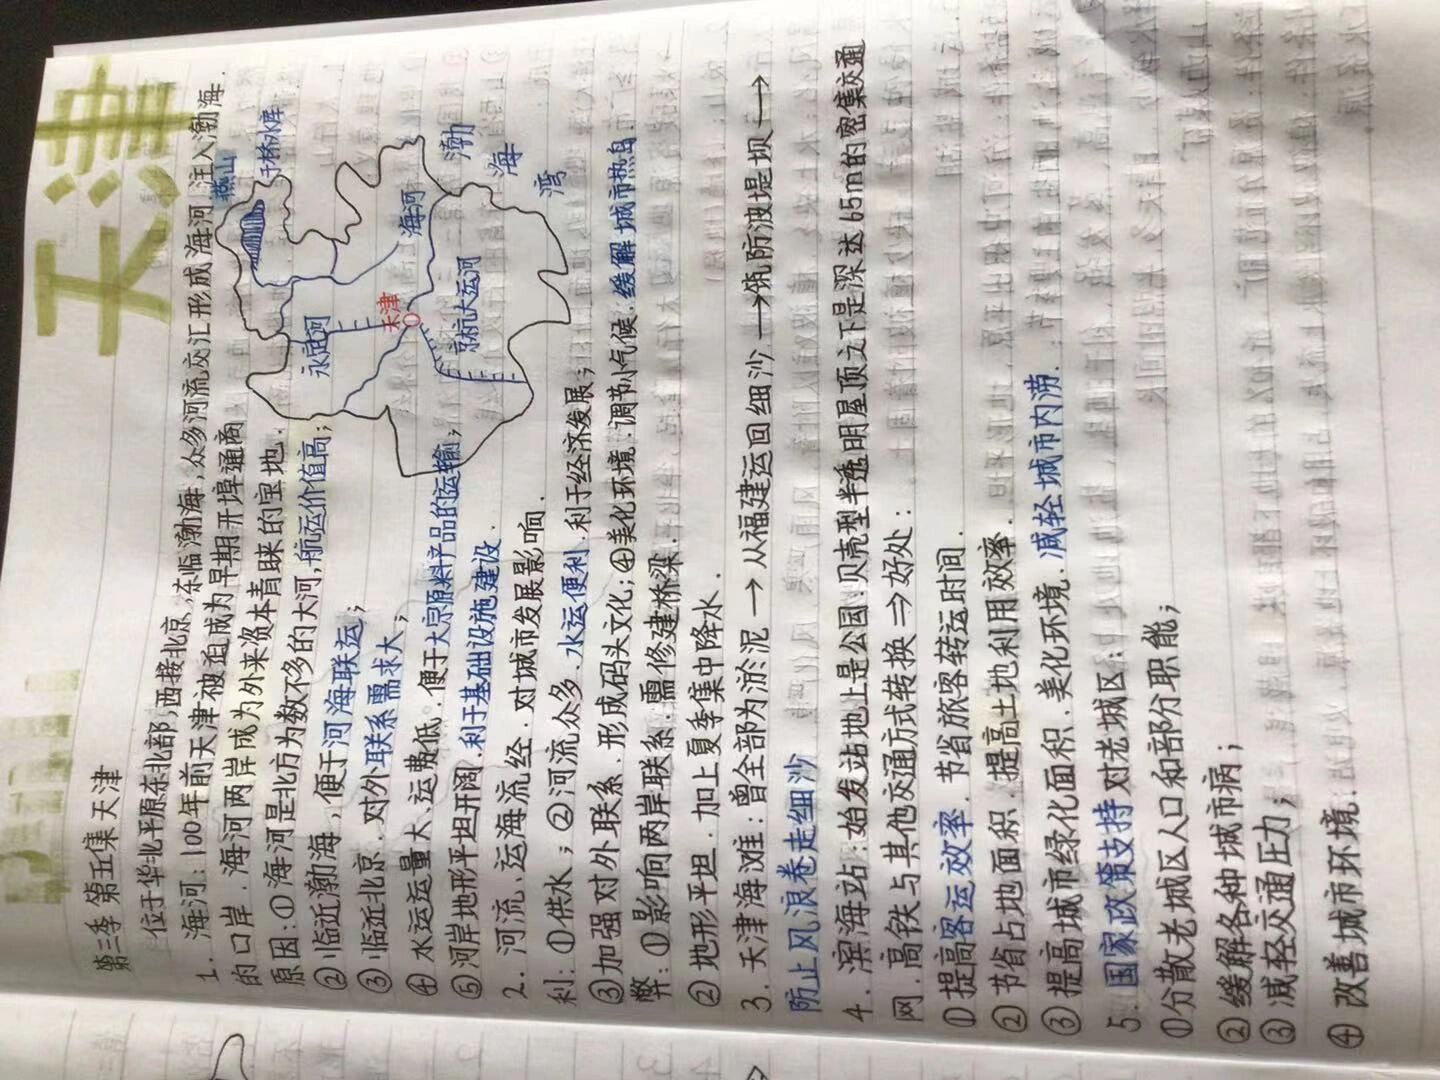 天津
第三季 第五集 天津
位于华北平原东北部,西接北京,东临渤海,众多河流交汇形成海河,注入渤海.
1. 海河:100年前天津被迫成为早期开埠通商
的口岸.海河两岸成为外来资本青睐的宝地.
原因:①海河是北方为数不多的大河,航运价值高;
②临近渤海,便于河海联运;
③临近北京.对外联系需求大;
④水运运量大、运费低.便于大宗原料产品的运输;
⑤河岸地形平坦开阔.利于基础设施建设.
2. 河流、运海流经.对城市发展影响.
利:①供水;②河流众多.水运便利.利于经济发展;
③加强对外联系.形成码头文化;④美化环境.调节小气候.缓解城市热岛.
弊:①影响两岸联系.需修建桥梁.
②地形平坦.加上夏季集中降水.
3. 天津海滩:曾全部为淤泥→从福建运回细沙→筑防波堤坝→
防止风浪卷走细沙
4. 滨海站:始发站地上是公园.贝壳型半透明屋顶之下是深达65m的密集交通
网.高铁与其他交通方式转换⇒好处:
①提高客运效率.节省旅客转运时间.
②节省占地面积.提高土地利用效率.
③提高城市绿化面积.美化环境.减轻城市内涝.
5. 国家政策支持对老城区:
①分散老城区人口和部分职能;
②缓解各种城市病;
③减轻交通压力;
④改善城市环境.
燕山
于桥水库
永定河
天津
海河
京杭大运河
渤
海
湾